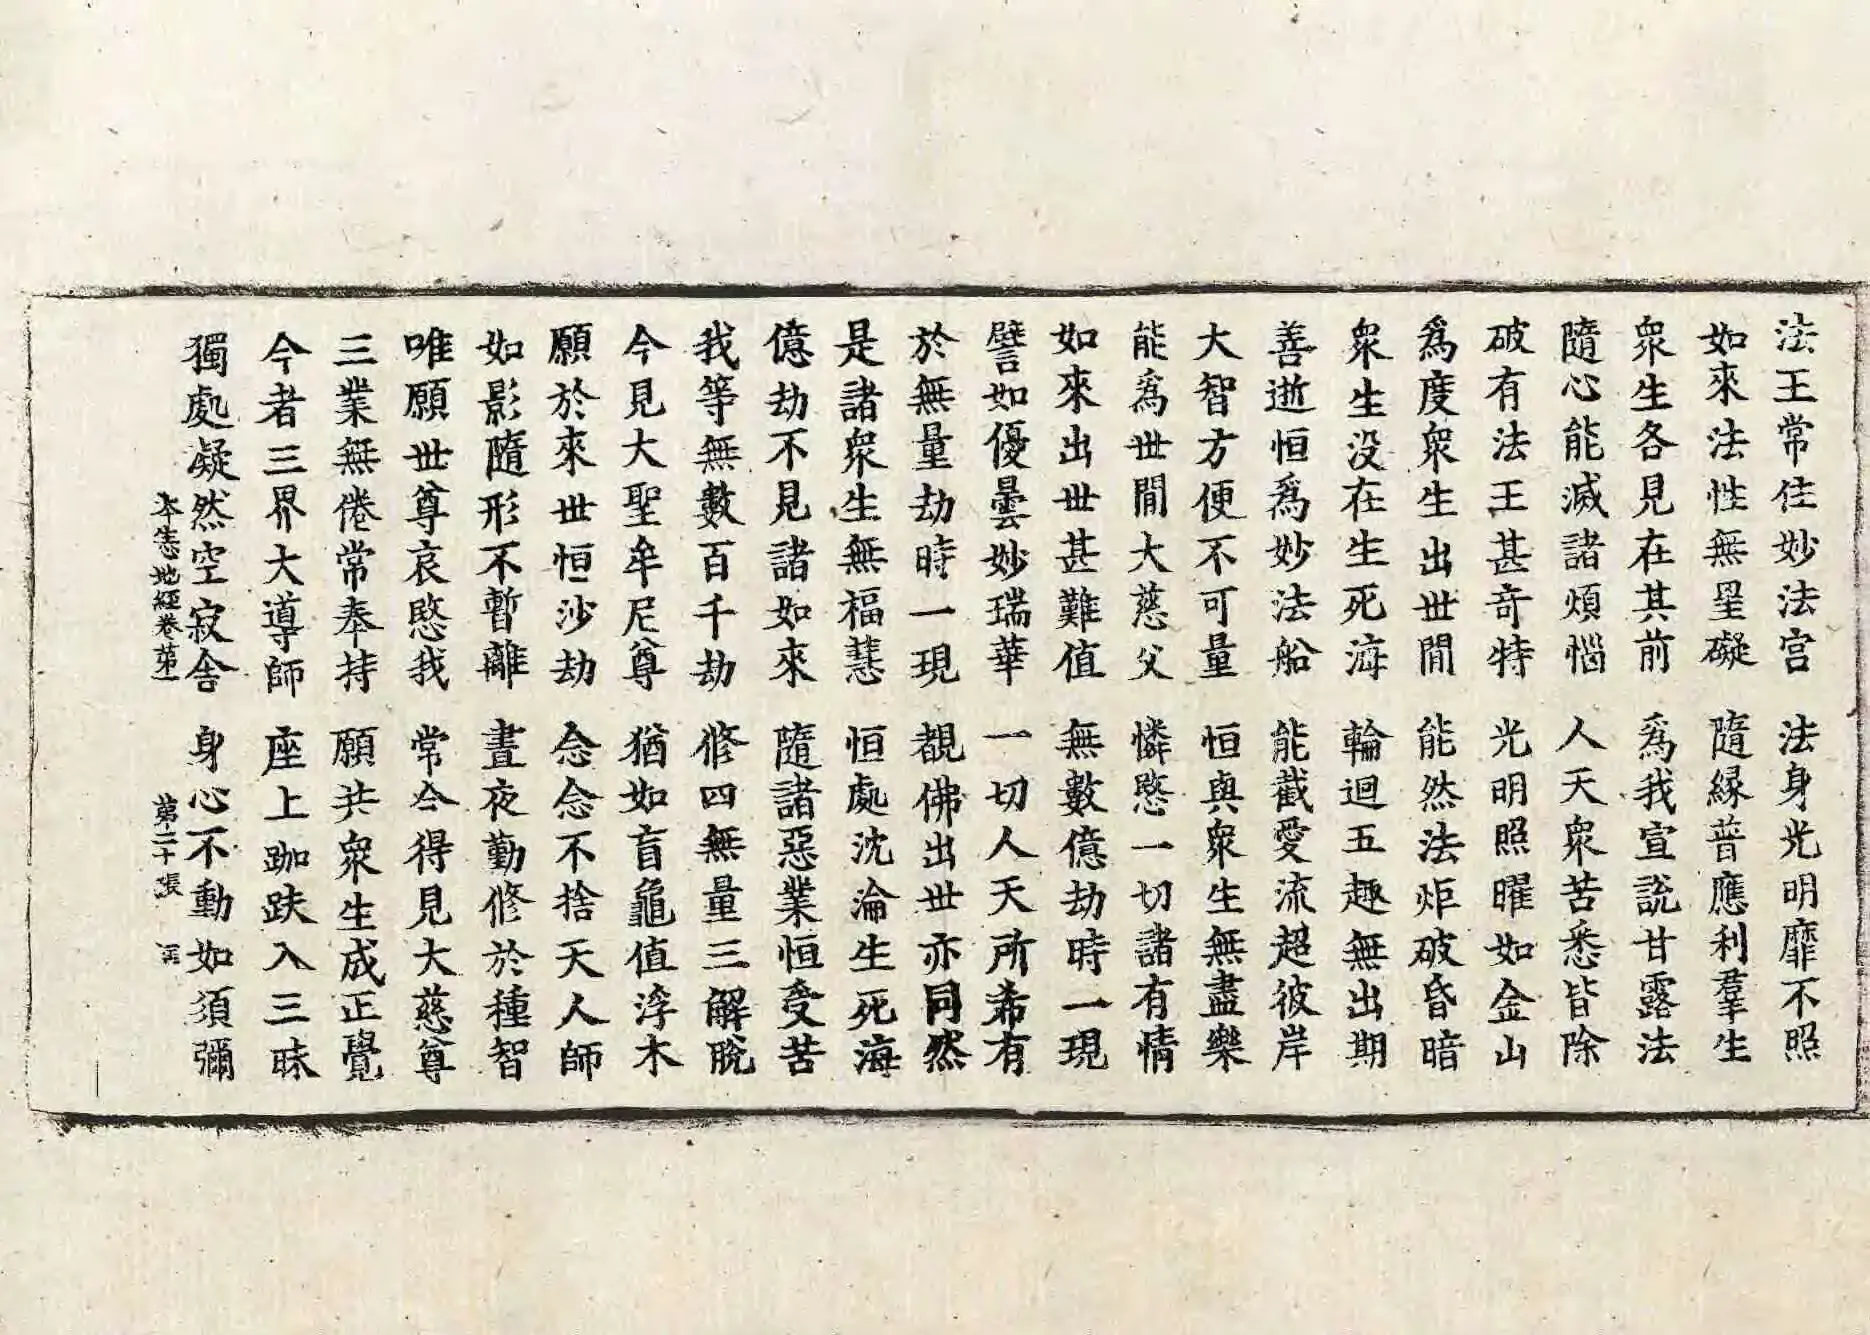 法王常住妙法宫　法身光明靡不照
如來法性無罣礙　隨緣普應利羣生
衆生各見在其前　爲我宣說甘露法
隨心能滅諸煩惱　人天衆苦悉皆除
破有法王甚奇特　光明照曜如金山
爲度衆生出世間　能然法炬破昏暗
衆生没在生死海　輪迴五趣無出期
善逝恒爲妙法船　能截愛流超彼岸
大智方便不可量　恒與衆生無盡樂
能爲世間大慈父　憐愍一切諸有情
如來出世甚難值　無數億劫時一現
譬如優曇妙瑞華　一切人天所希有
於無量劫時一現　覩佛出世亦同然
是諸衆生無福慧　恒處沈淪生死海
億劫不見諸如來　隨諸惡業恒受苦
我等無數百千劫　修四無量三解脫
今見大聖牟尼尊　猶如盲龜值浮木
願於來世恒沙劫　念念不捨天人師
如影隨形不暫離　晝夜勤修於種智
唯願世尊哀愍我　常令得見大慈尊
三業無倦常奉持　願共衆生成正覺
今者三界大導師　座上跏趺入三昧
獨處凝然空寂舍　身心不動如須彌
本生心地經卷第一　第二十張